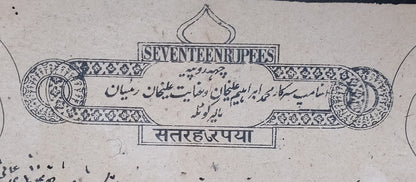 SEVENTEEN RUPEES
اسٹامپ سرکار محمد ابراہیم علیخان و عنایت علیخان رئیسان
مالیر کوٹلہ
सतरह रुपया